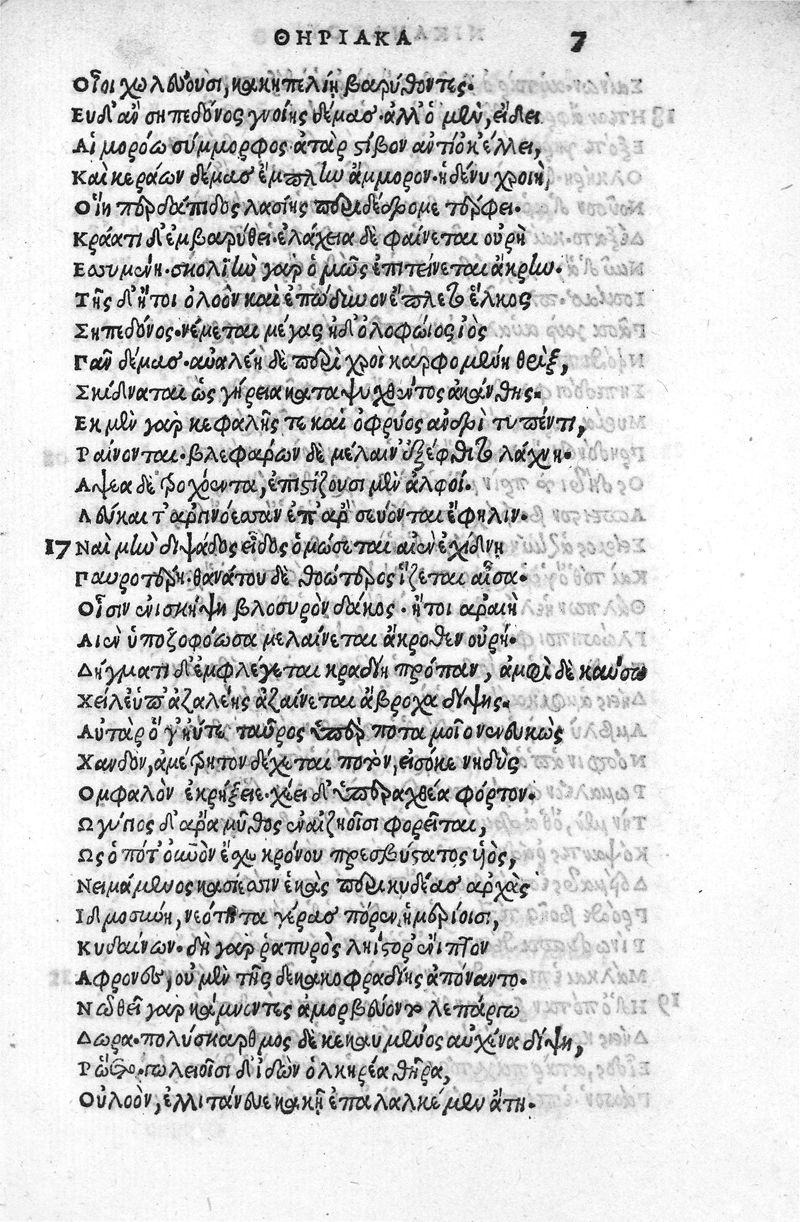 ΘΗΡΙΑΚΑ 7
Οἷοι χωλεύουσι, κακηπελίῃ βαρύθοντες.
Εὖ δ' ἂν σηπεδόνος γνοίης δέμας. ἀλλ' ὁ μὲν, εἴδει
Αἱμοροΐῳ σύμμορφος ἀτὰρ στίβον ἀντί' ὀκέλλει,
Καὶ κεράων δέμας ἔμπλην ἄμμορον. ἡ δέ νυ χροιὴ,
Οἵη περ δάπιδος λασίης περιδέδρομε τέρφει.
Κράατι δ' ἐμβαρύθει. ἐλάχεια δὲ φαίνεται οὐρὴ
Εσσυμένη. σκολιὴν γὰρ ὁμῶς ἐπιτείνεται ἄκρην.
Τῆς δ' ἤτοι ὀλοὸν καὶ ἐπώδυνον ἔπλετο ἕλκος
Σηπεδόνος. νέμεται μέγας ἠδ' ὀλοφώιος ἰὸς
Γᾶν δέμας. αὐαλέη δὲ περὶ χροῒ καρφομένη θρὶξ,
Σκίδναται ὡς γήρεια καταψυχθέντος ἀκάνθης.
Εκ μὲν γὰρ κεφαλῆς τε καὶ ὀφρύος ἀνδρὶ τυπέντι,
Ραίνονται. βλεφάρων δὲ μέλαιν' ἐξέφθιτο λάχνη.
Αψεα δὲ τροχόεντα, ἐπιστίζουσι μὲν ἀλφοί.
Λεῦκαι τ' ἀργινόεσσαν ἐπ' ἂρ σεύονται ἔφηλιν.
17 Ναὶ μὴν διψάδος εἶδος ὁμώσεται αἰὲν ἐχίδνῃ
Παυροτέρῃ. θανάτου δὲ θοώτερος ἵξεται αἶσα.
Οἷσιν ἐνισκίμψῃ βλοσυρὸν δάκος. ἤτοι ἀραιὴ
Αἰὲν ὑποζοφόωσα μελαίνεται ἄκροθεν οὐρή.
Δήγματι δ' ἐμφλέγεται κραδίη πρόπαν, ἀμφὶ δὲ καύσῳ
Χείλε' ὑπ' ἀζαλέης ἀζαίνεται ἄβροχα δίψης.
Αὐτὰρ ὅγ' ἠύτε ταῦρος ὑπὲρ ποταμοῖο νενευκὼς
Χανδὸν, ἀμέτρητον δέχεται ποτὸν, εἰσόκε νηδὺς
Ομφαλὸν ἐκρήξειε. χέει δ' ὑπεραχθέα φόρτον.
Ωγύγιος δ' ἄρα μῦθος ἐν αἰζηοῖσι φορεῖται,
Ως ὁπότ' οὐρανὸν ἔσχε κρόνου πρεσβύστατος υἱὸς,
Νειμάμενος κασίεσσιν ἑκὰς περικυδέας ἀρχὰς
Ιδμοσύνῃ, νεότητα γέρας πόρεν ἡμερίοισι,
Κυδαίνων. δὴ γάρ ῥα πυρὸς ληίστορ' ἔνιπτον
Αφρονες, οὐ μὲν τῆς δὲ κακοφραδίης ἀπόναντο.
Νωθεῖ γὰρ κάμνοντες ἀμορβεύοντο λεπάργῳ
Δῶρα. πολύσκαρθμος δὲ κεκαυμένος αὐχένα δίψῃ,
Ρώετο. γωλειοῖσι δ' ἰδὼν ὁλκηρέα θῆρα,
Οὐλοὸν, ἐλλιτάνευε κακῇ ἐπαλαλκέμεν ἄτῃ.